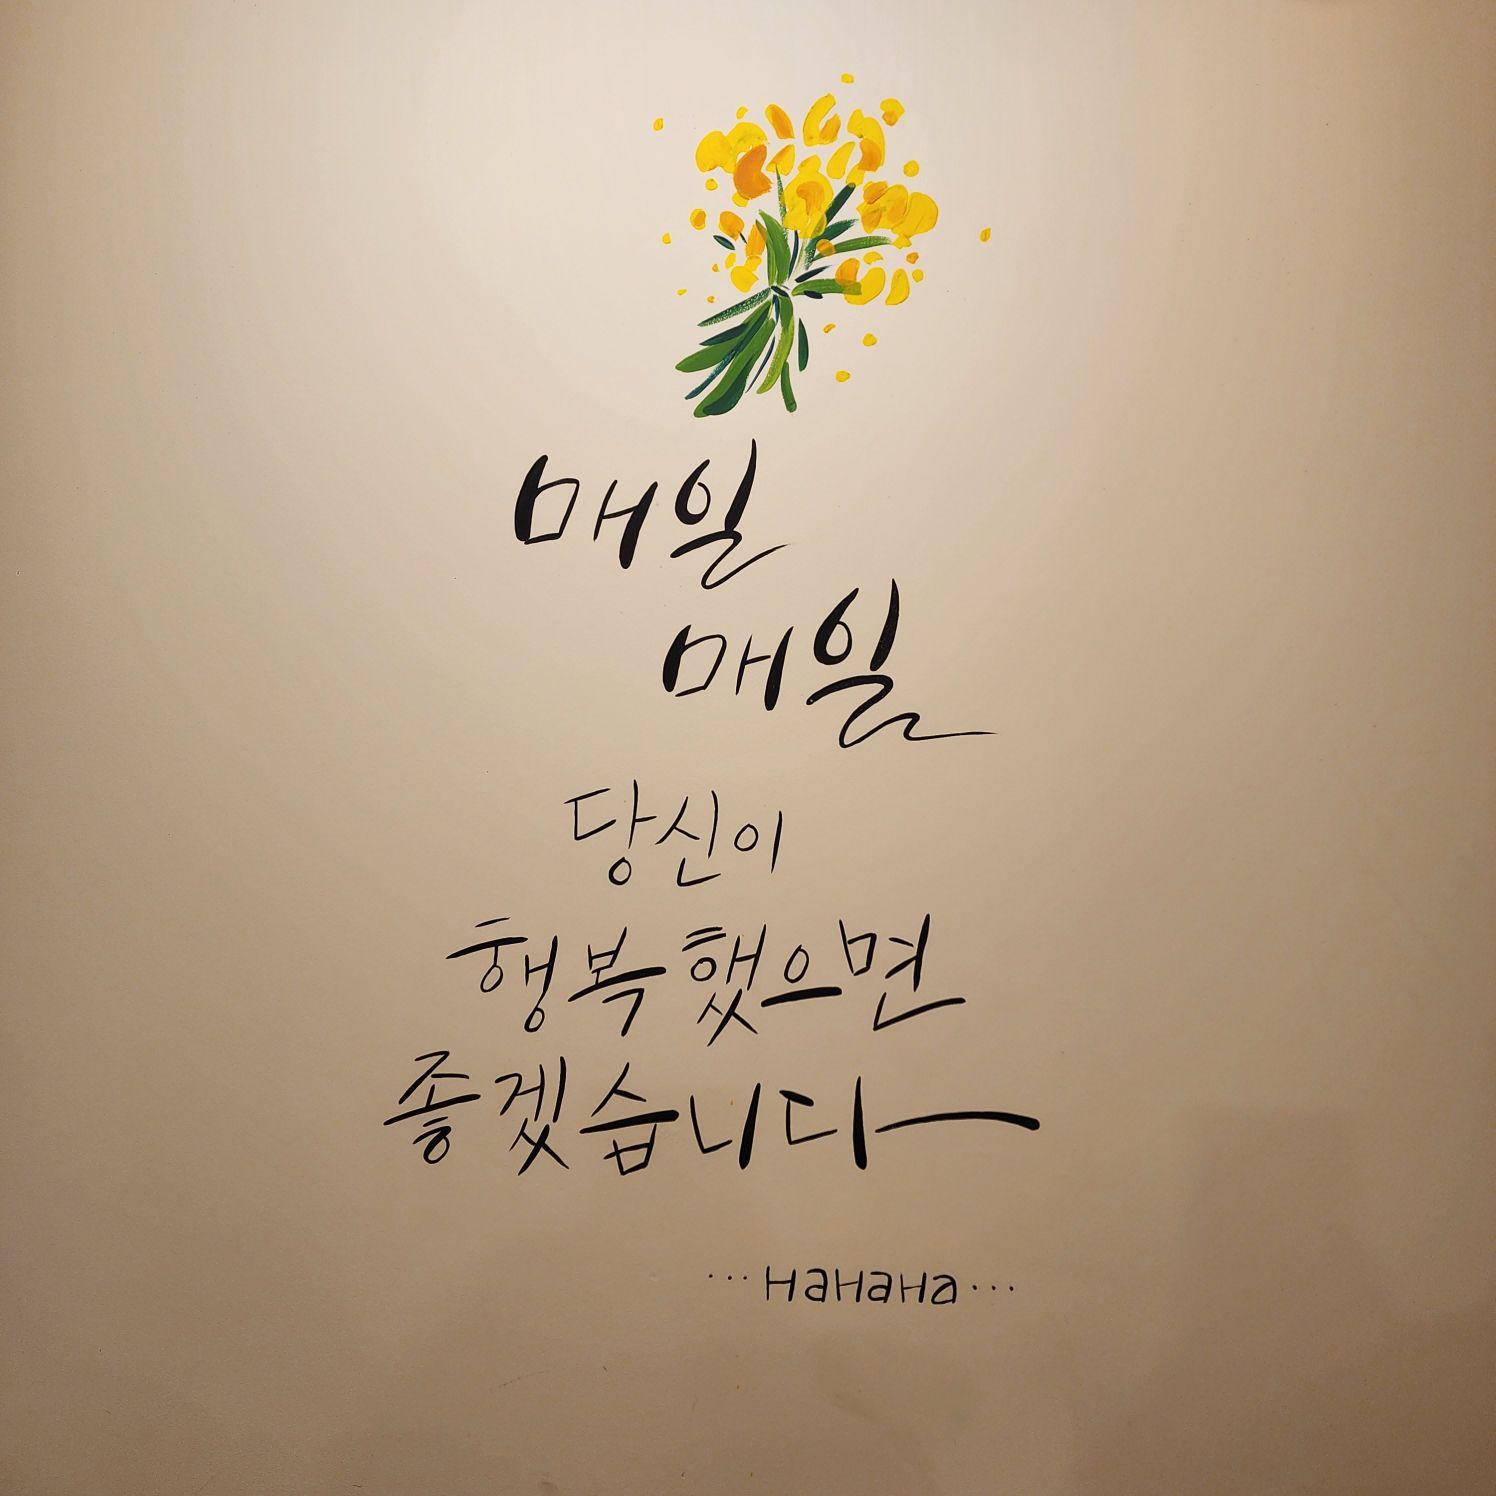 매일
매일
당신이
행복했으면
좋겠습니다
...HaHaHa...